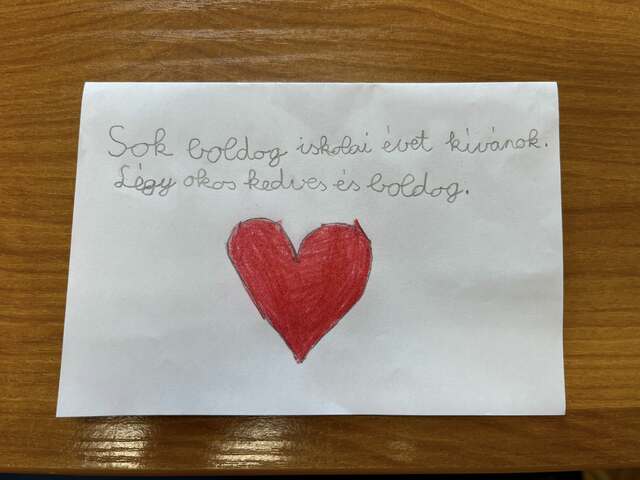 Sok boldog iskolai évet kívánok.
Légy okos kedves és boldog.